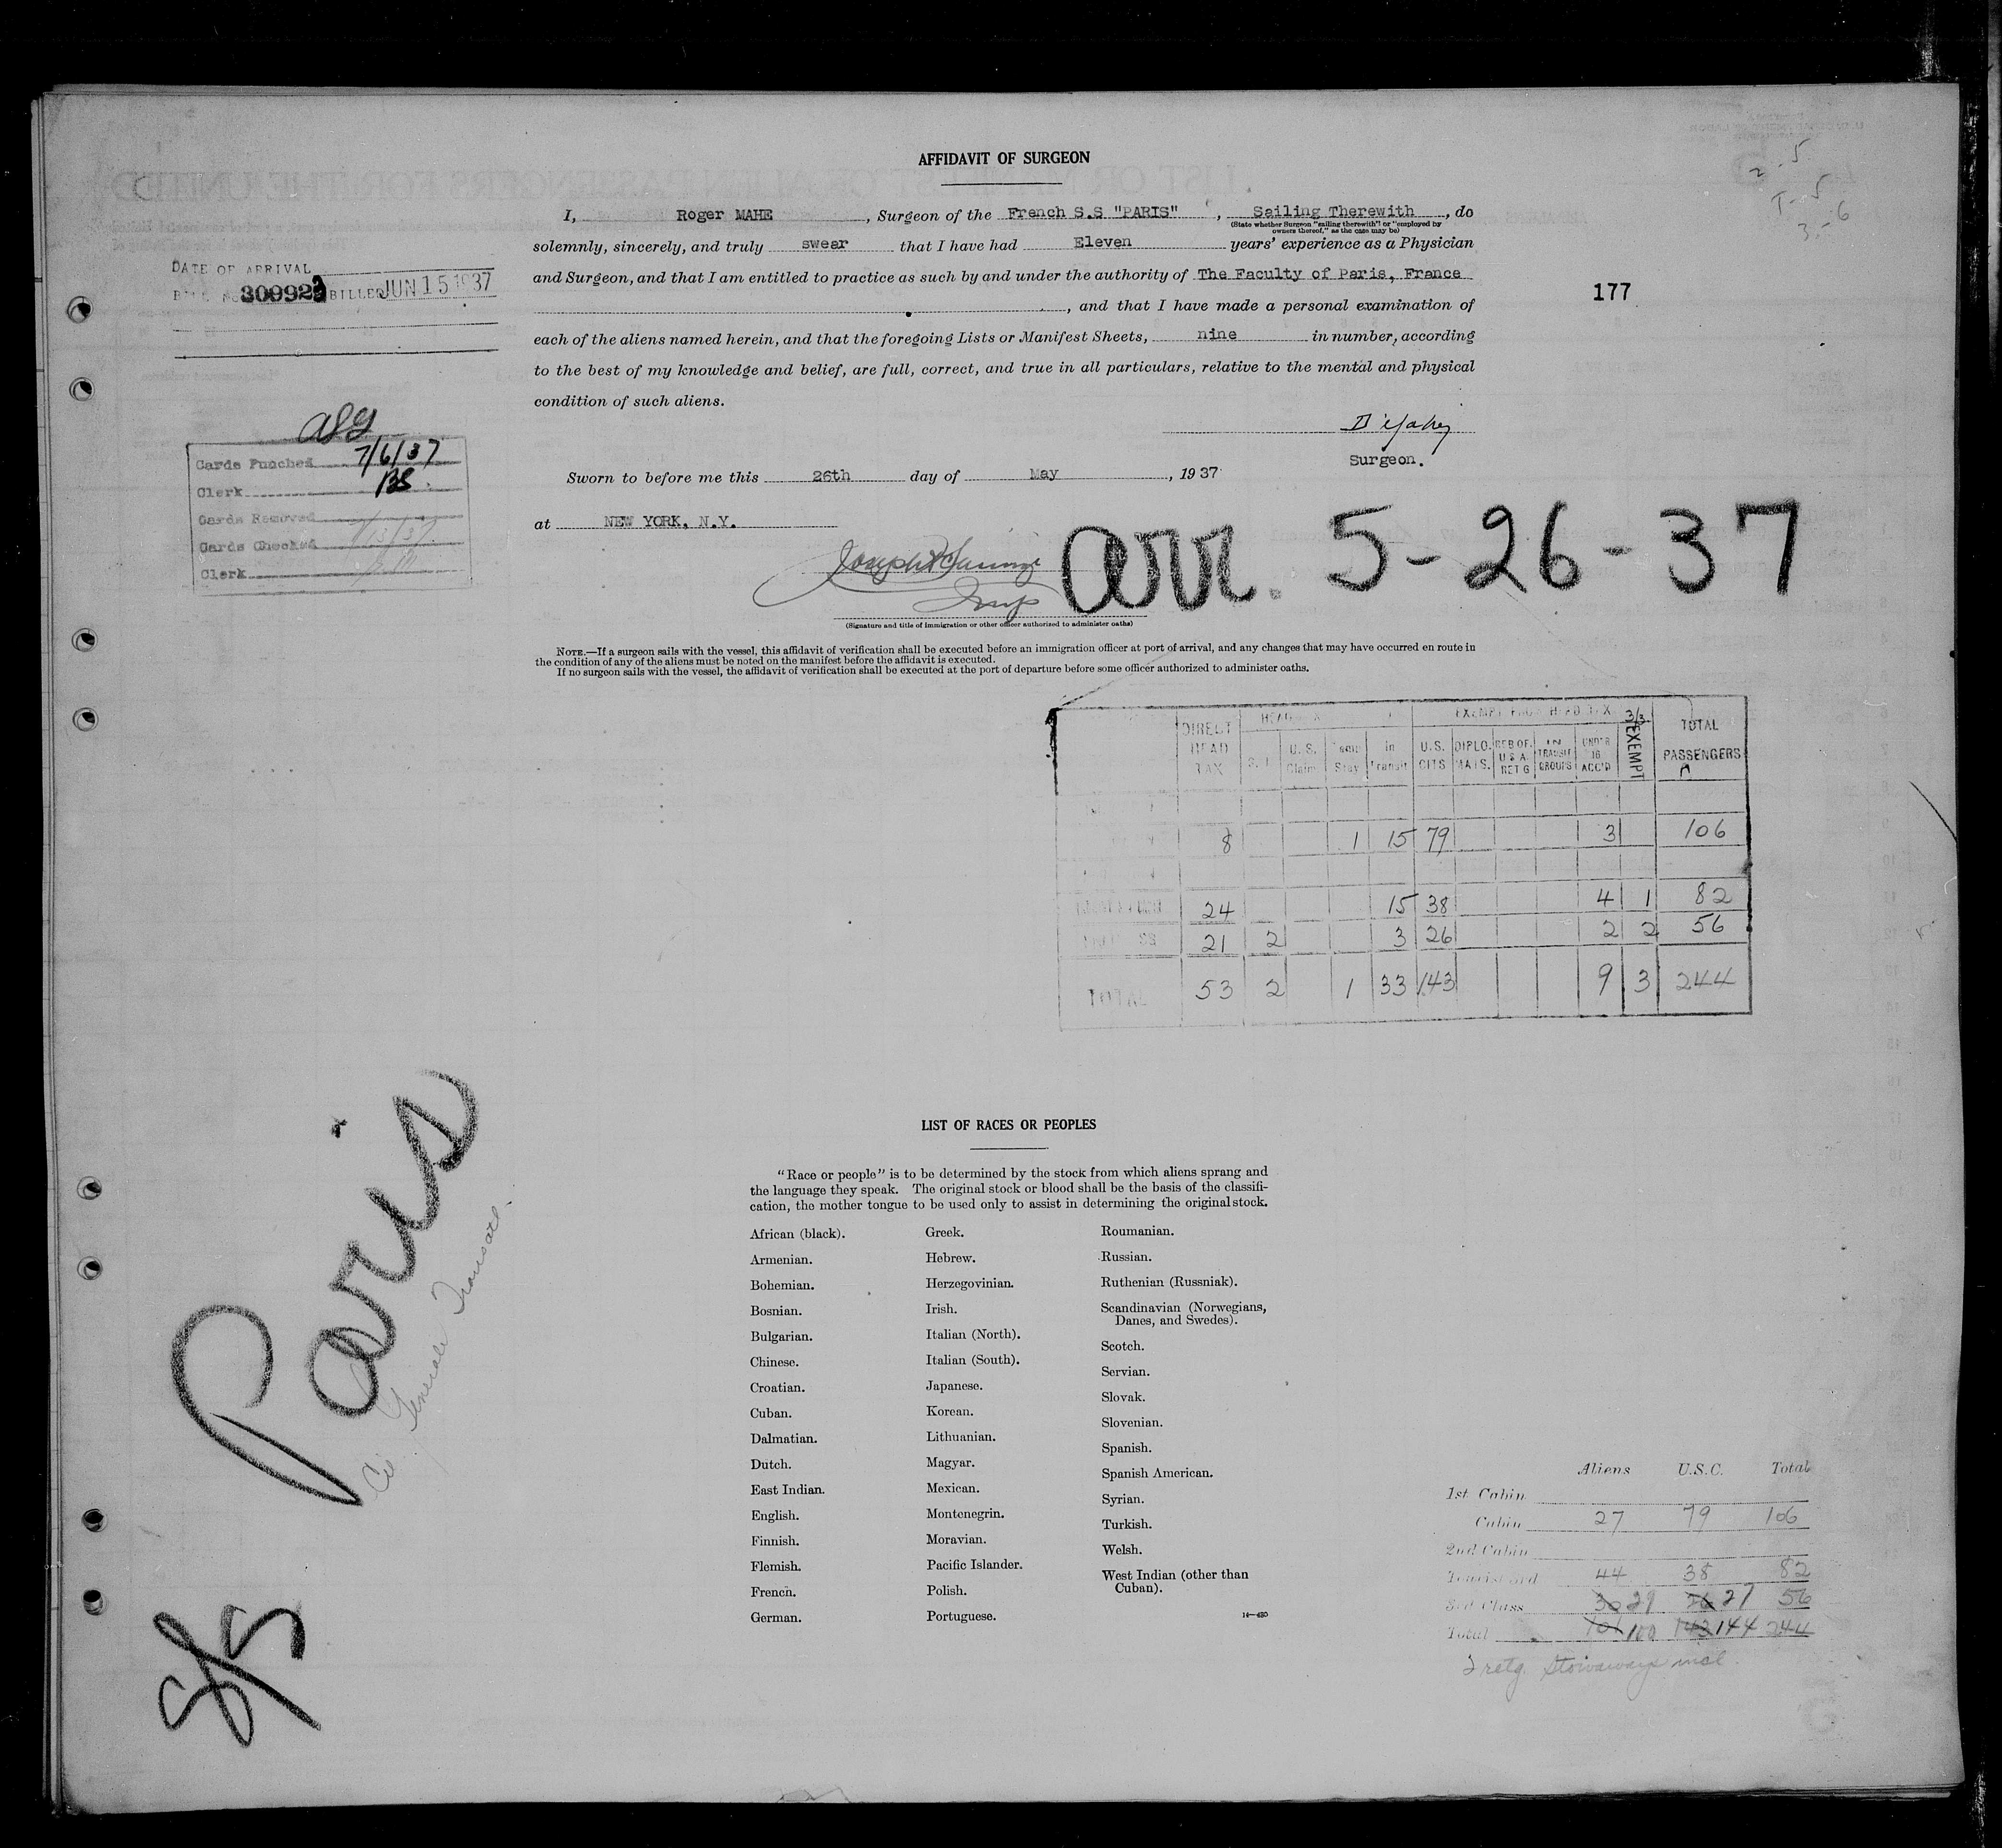 AFFIDAVIT OF SURGEON
I, Roger MAHE, Surgeon of the French S.S "PARIS", Sailing Therewith, do
(State whether Surgeon "sailing therewith" or "employed by
owners thereof," as the case may be)
solemnly, sincerely, and truly swear that I have had Eleven years' experience as a Physician
and Surgeon, and that I am entitled to practice as such by and under the authority of The Faculty of Paris, France
, and that I have made a personal examination of
each of the aliens named herein, and that the foregoing Lists or Manifest Sheets, nine in number, according
to the best of my knowledge and belief, are full, correct, and true in all particulars, relative to the mental and physical
condition of such aliens.
Surgeon.
Sworn to before me this 26th day of May, 1937
at NEW YORK, N.Y.
(Signature and title of immigration or other officer authorized to administer oaths)
NOTE.—If a surgeon sails with the vessel, this affidavit of verification shall be executed before an immigration officer at port of arrival, and any changes that may have occurred en route in
the condition of any of the aliens must be noted on the manifest before the affidavit is executed.
If no surgeon sails with the vessel, the affidavit of verification shall be executed at the port of departure before some officer authorized to administer oaths.
DATE OF ARRIVAL
BILLED JUN 15 1937
177
Cards Punched 7/6/37
Clerk BS
Cards Removed
Cards Checked
Clerk
arr. 5-26-37
DIRECT HEAD TAX
U.S. Claim
in Transit
U.S. CITS
DIPLOMATS.
IN TRANSIT GROUPS
UNDER 16 ACC'D
EXEMPT
TOTAL PASSENGERS
8 1 15 79 3 106
24 15 38 4 1 82
21 2 3 26 2 2 56
TOTAL 53 2 1 33 143 9 3 244
Paris
S/S
LIST OF RACES OR PEOPLES
"Race or people" is to be determined by the stock from which aliens sprang and
the language they speak. The original stock or blood shall be the basis of the classifi-
cation, the mother tongue to be used only to assist in determining the original stock.
African (black).
Armenian.
Bohemian.
Bosnian.
Bulgarian.
Chinese.
Croatian.
Cuban.
Dalmatian.
Dutch.
East Indian.
English.
Finnish.
Flemish.
French.
German.
Greek.
Hebrew.
Herzegovinian.
Irish.
Italian (North).
Italian (South).
Japanese.
Korean.
Lithuanian.
Magyar.
Mexican.
Montenegrin.
Moravian.
Pacific Islander.
Polish.
Portuguese.
Roumanian.
Russian.
Ruthenian (Russniak).
Scandinavian (Norwegians,
Danes, and Swedes).
Scotch.
Servian.
Slovak.
Slovenian.
Spanish.
Spanish American.
Syrian.
Turkish.
Welsh.
West Indian (other than
Cuban).
Aliens U.S.C. Total
1st Cabin
Cabin 27 79 106
2nd Cabin
Tourist 3rd 44 38 82
3rd Class 30 29 26 27 56
Total 101 100 143 144 244
2 retg. Stowaways incl.